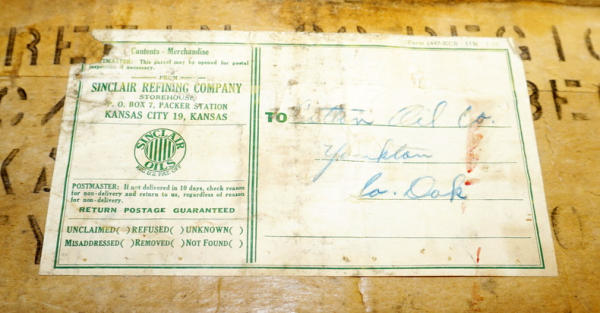 Contents - Merchandise
POSTMASTER: This parcel may be opened for postal
inspection if necessary.
FROM
SINCLAIR REFINING COMPANY
STOREHOUSE
P. O. BOX 7, PACKER STATION
KANSAS CITY 19, KANSAS
SINCLAIR
OILS
REG. U.S. PAT. OFF.
POSTMASTER: If not delivered in 10 days, check reason
for non-delivery and return to us, regardless of reason
for non-delivery.
RETURN POSTAGE GUARANTEED
UNCLAIMED( ) REFUSED( ) UNKNOWN( )
MISADDRESSED( ) REMOVED( ) NOT FOUND( )
TO
Oil Co.
Yankton
So. Dak